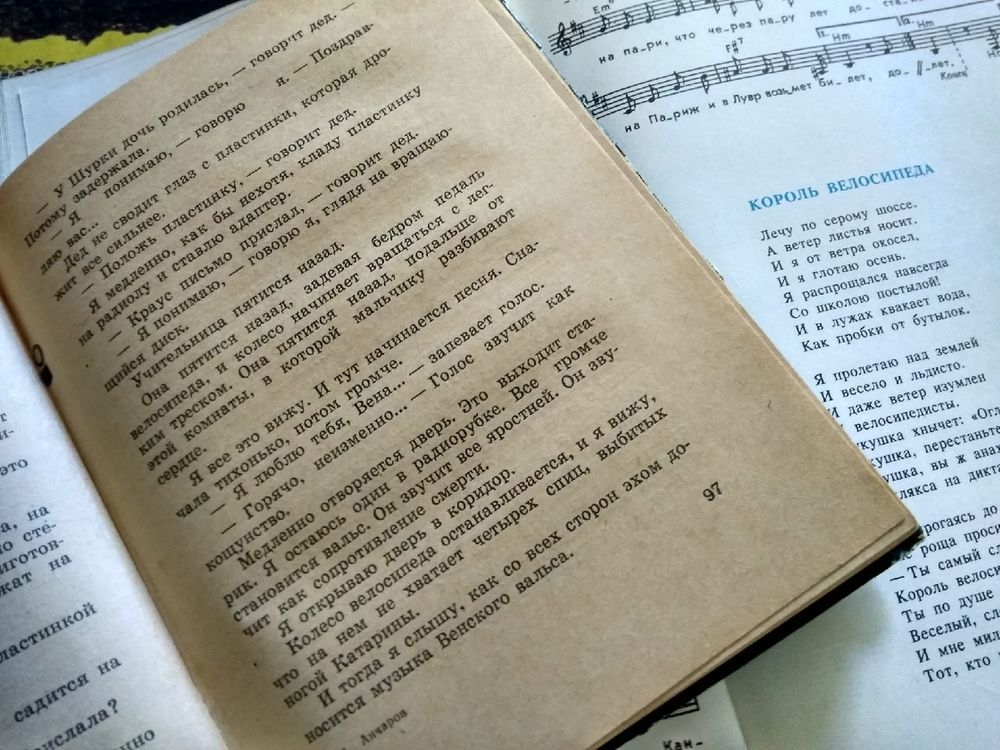 — У Шурки дочь родилась, — говорит дед. —
Потому задержала.
— Я понимаю, — говорю я. — Поздрав-
ляю вас...
Дед не сводит глаз с пластинки, которая дро-
жит все сильнее.
— Положь пластинку, — говорит дед.
Я медленно, как бы нехотя, кладу пластинку
на радиолу и ставлю адаптер.
— Краус письмо прислал, — говорит дед.
— Я понимаю, — говорю я, глядя на вращаю-
щийся диск.
Учительница пятится назад.
Она пятится назад, задевая бедром педаль
велосипеда, и колесо начинает вращаться с лег-
ким треском. Она пятится назад, подальше от
этой комнаты, в которой мальчику разбивают
сердце.
Я все это вижу. И тут начинается песня. Сна-
чала тихонько, потом громче.
— Я люблю тебя, Вена... — запевает голос.
— Горячо, неизменно... — Голос звучит как
кощунство.
Медленно отворяется дверь. Это выходит ста-
рик. Я остаюсь один в радиорубке. Все громче
становится вальс. Он звучит все яростней. Он зву-
чит как сопротивление смерти.
Я открываю дверь в коридор.
Колесо велосипеда останавливается, и я вижу,
что на нем не хватает четырех спиц, выбитых
ногой Катарины.
И тогда я слышу, как со всех сторон эхом до-
носится музыка Венского вальса.
97
Анчаров
это
а, на
но сте-
иготов-
жат на
ластинкой
садится на
рислала?
нно
Em
на па_ри, что че_рез па_ру лет до_ста_
F#7
1.
2.
Hm
на Па_риж и в Лувр возь_мет би_лет, до_лет.
Конец
КОРОЛЬ ВЕЛОСИПЕДА
Лечу по серому шоссе.
А ветер листья носит.
И я от ветра окосел,
И я глотаю осень.
Я распрощался навсегда
Со школою постылой!
И в лужах квакает вода,
Как пробки от бутылок.
Я пролетаю над землей
И весело и льдисто.
И даже ветер изумлен
велосипедисты.
укушка хнычет: «Огл
кушка, перестаньте
ушка, вы ж анах
лякса на дикта
рогаясь до
е роща проси
— Ты самый сл
Король велоси
Ты по душе
Веселый, сл
И мне мил
Тот, кто
Кан_